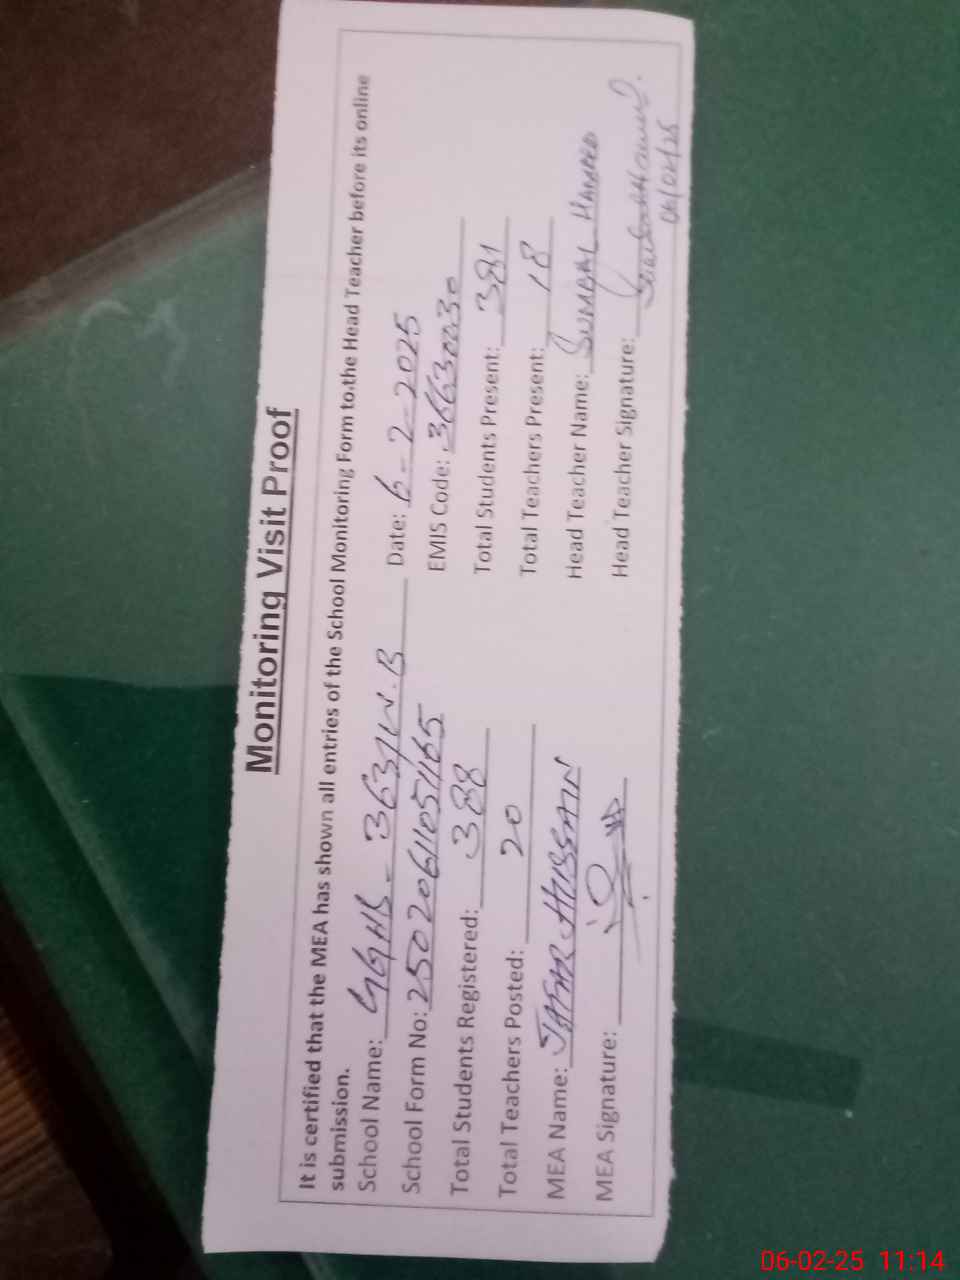 Monitoring Visit Proof
It is certified that the MEA has shown all entries of the School Monitoring Form to the Head Teacher before its online
submission.
School Name: GGHS - 363/W.B Date: 6-2-2025
School Form No: 25020611051165 EMIS Code: 36630030
Total Students Registered: 388 Total Students Present: 381
Total Teachers Posted: 20 Total Teachers Present: 18
MEA Name: JAFAR HUSSAIN Head Teacher Name: SUMBAL HAMEED
MEA Signature: Head Teacher Signature:
06/02/25
06-02-25 11:14